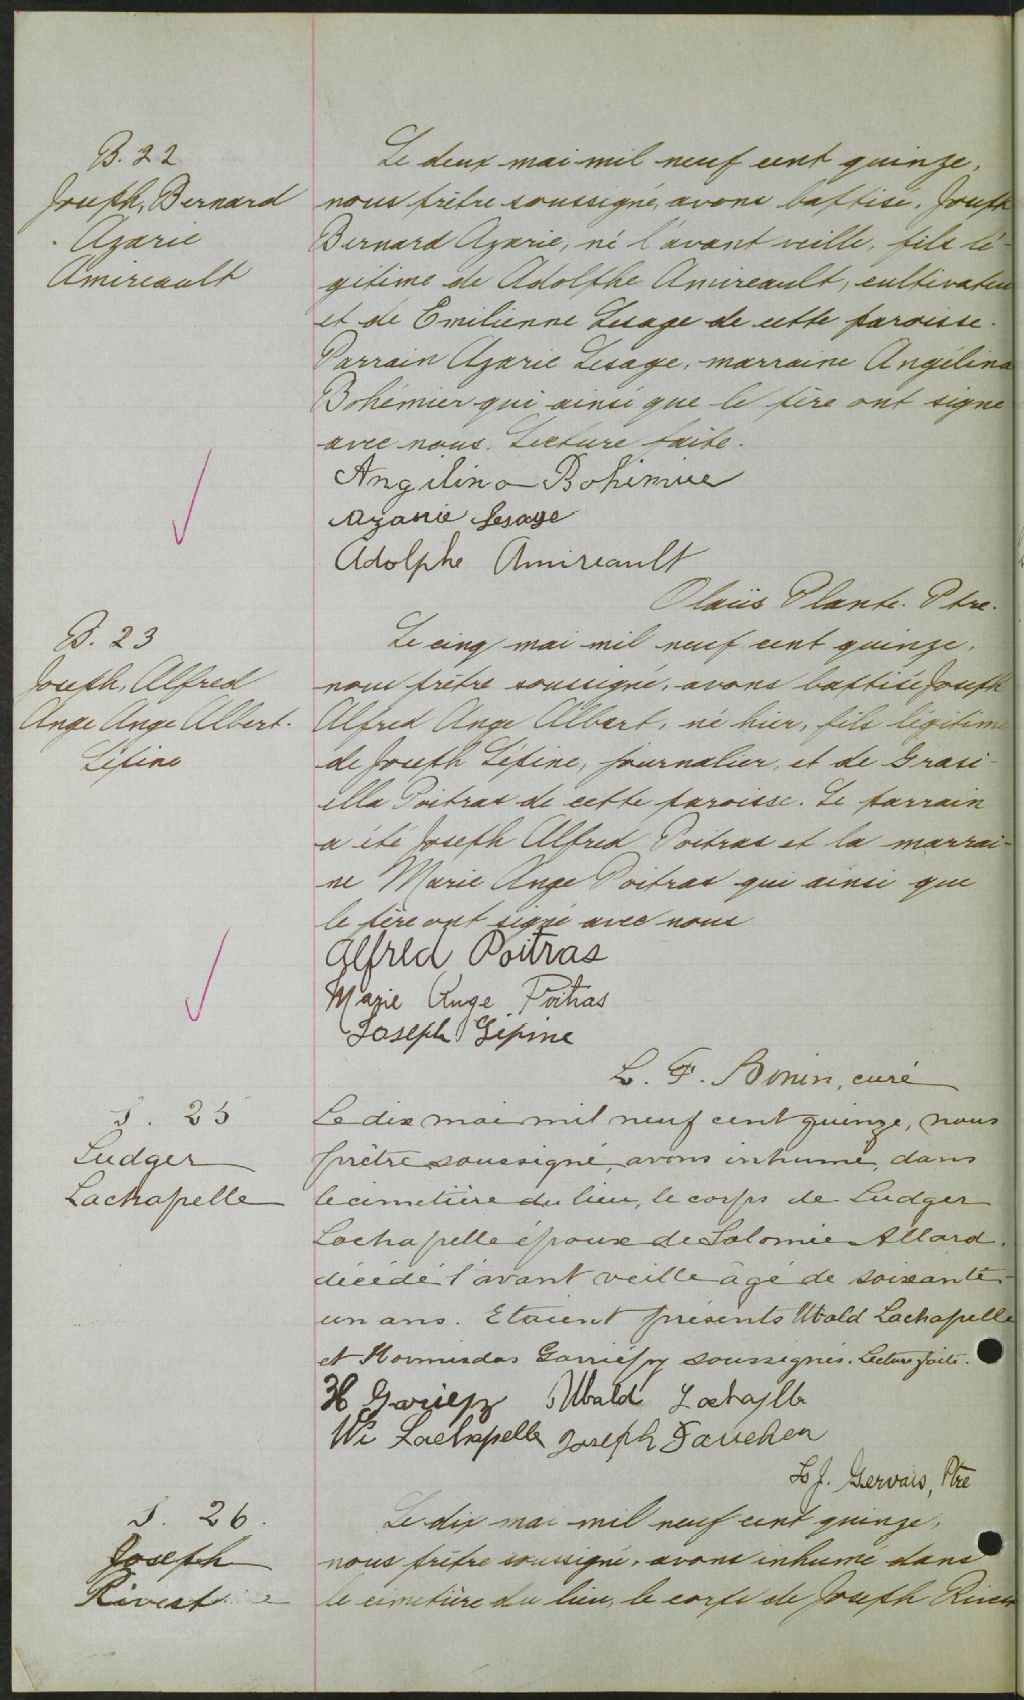 B. 22
Joseph, Bernard
Azarie
Amireault
Le deux mai mil neuf cent quinze,
nous prêtre soussigné, avons baptisé, Joseph
Bernard Azarie, né l'avant veille, fils lé-
gitime de Adolphe Amireault, cultivateur
et de Emilienne Lesage de cette paroisse.
Parrain Azarie Lesage, marraine Angélina
Bohémier qui ainsi que le père ont signé
avec nous. Lecture faite.
Angilina Bohémier
Azarie Lesage
Adolphe Amireault
Olaüs Plante. Ptre.
B. 23
Joseph, Alfred
Ange Ange Albert.
Lépine
Le cinq mai mil neuf cent quinze,
nous prêtre soussigné, avons baptisé Joseph
Alfred Ange Albert, né hier, fils légitime
de Joseph Lépine, journalier, et de Grasi-
ella Poitras de cette paroisse. Le parrain
a été Joseph Alfred Poitras et la marrai-
ne Marie Ange Poitras qui ainsi que
le père ont signé avec nous
Alfred Poitras
Marie Ange Poitras
Joseph Lépine
L. F. Bonin, curé
S. 25
Ludger
Lachapelle
Le dix mai mil neuf cent quinze, nous
prêtre soussigné, avons inhumé, dans
le cimetière du lieu, le corps de Ludger
Lachapelle époux de Salomie Allard,
décédé l'avant veille âgé de soixante-
un ans. Etaient présents Ubald Lachapelle
et Hormisdas Garriépy soussignés. Lecture faite.
H Gariépy Ubald Lachaplle
Wi Lachapelle Joseph Faucher
Ls J. Gervais, Ptre
S. 26.
Joseph
Rivest
Le dix mai mil neuf cent quinze,
nous prêtre soussigné, avons inhumé dans
le cimetière du lieu, le corps de Joseph Rivest